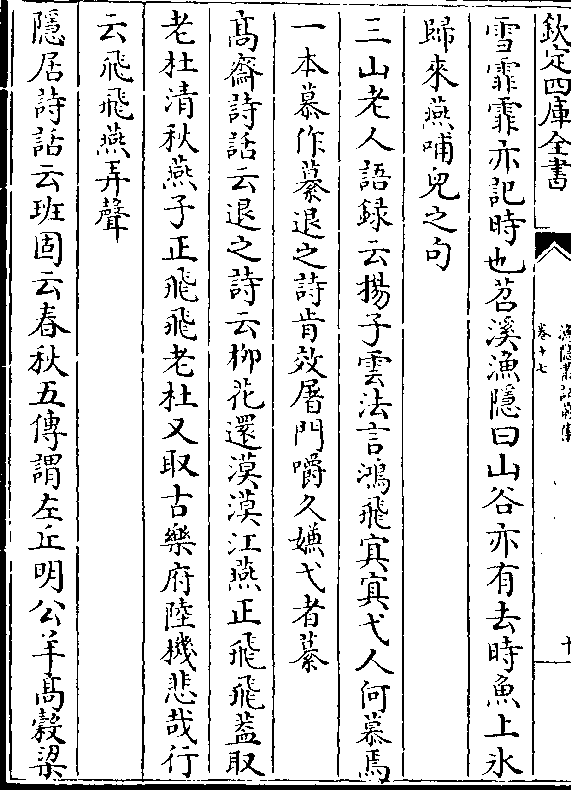 欽定四庫全書
卷十七
雪霏霏亦記時也苕溪漁隱曰山谷亦有去時魚上氷
歸來燕哺兒之句
三山老人語録云揚子雲法言鴻飛㝠㝠弋人何慕焉
一本慕作纂退之詩肯效屠門嚼久嫌弋者纂
髙齋詩話云退之詩云柳花還漠漠江燕正飛飛葢取
老杜清秋燕子正飛飛老杜又取古樂府陸機悲哉行
云飛飛燕弄聲
隱居詩話云班固云春秋五傳謂左丘明公羊髙榖梁